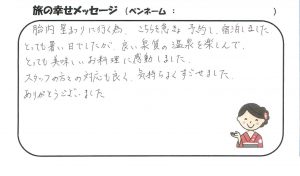 旅の幸せメッセージ (ペンネーム : )
胎内 星まつりに行く為、こちらを急きょ予約し、宿泊しました
とっても暑い日でしたが、良い泉質の温泉を楽しんで、
とっても美味しいお料理に感動しました。
スタッフの方との対応も良く、気持ちよくすごせました。
ありがとうございました。